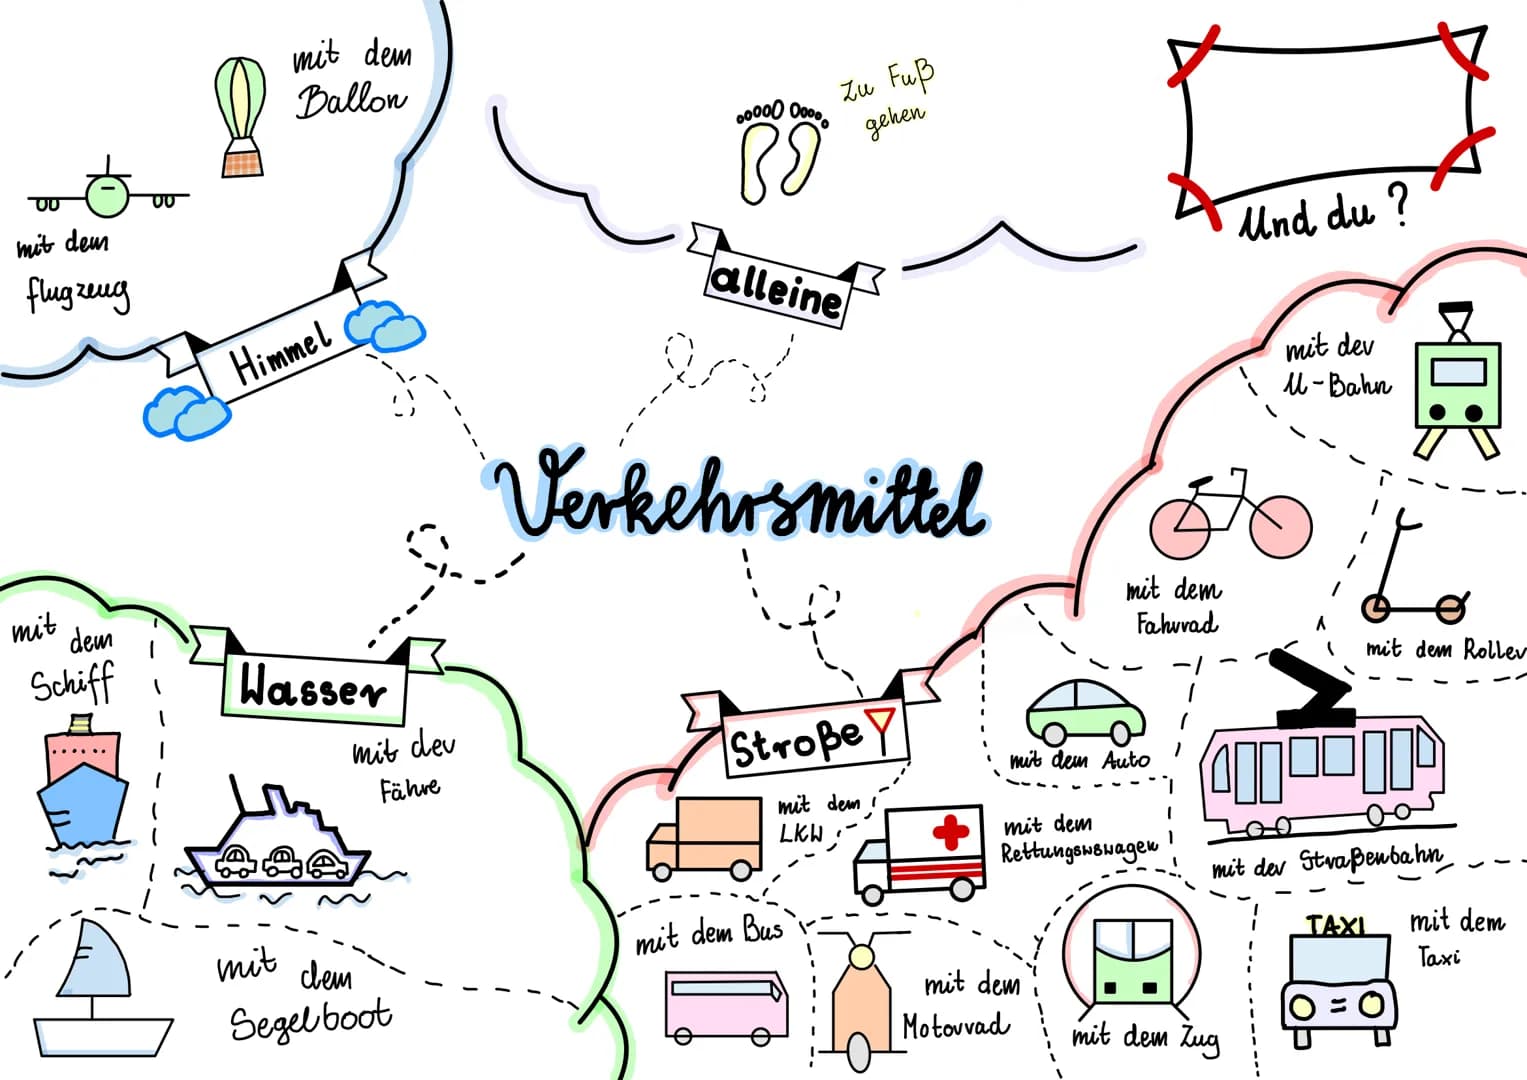 mit dem
Ballon
mit dem
flugzeug
Himmel
zu Fuß
gehen
alleine
Und du?
Verkehrsmittel
mit der
U-Bahn
mit dem
Fahrrad
mit dem Roller
Wasser
mit dem
Schiff
mit der
Fähre
mit dem
Segelboot
Straße
mit dem Auto
mit dem
LKW
mit dem
Rettungswswagen
mit der Straßenbahn
mit dem Bus
mit dem
Motorrad
mit dem Zug
TAXI
mit dem
Taxi